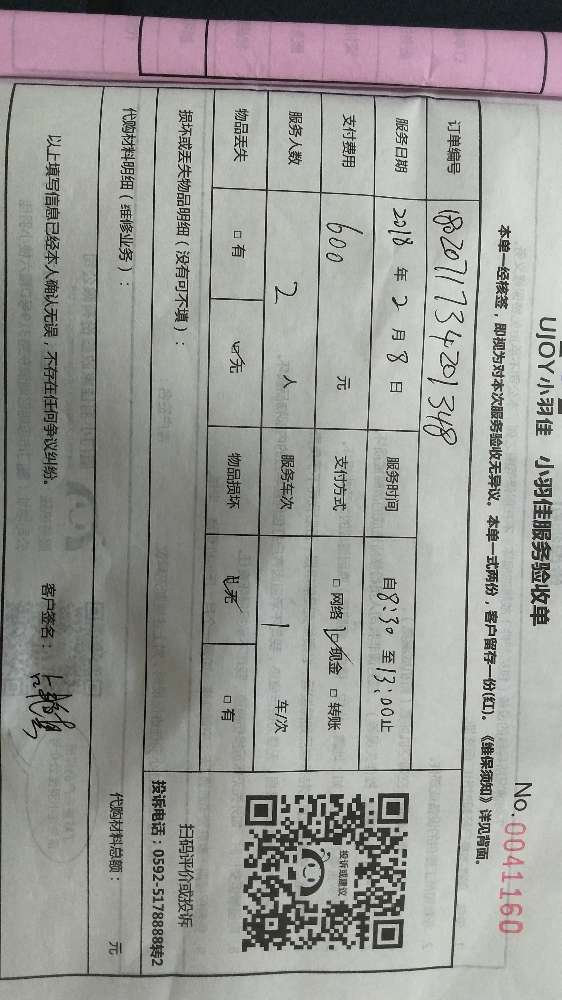 UJOY小羽佳 小羽佳服务验收单
No.0041160
本单一经核签，即视为对本次服务验收无异议。本单一式两份，客户留存一份(红)。《维保须知》详见背面。
订单编号 1802071734201348
服务日期 2018 年 2 月 8 日 服务时间 自 8:30 至 13:00 止
支付费用 600 元 支付方式 □ 网络 □ 现金 □ 转账
服务人数 2 人 服务车次 1 车/次
物品丢失 □ 有 □ 无 物品损坏 □ 无 □ 有
损坏或丢失物品明细（没有可不填）：
投诉或建议
扫码评价或投诉
投诉电话：0592-5178888转2
代购材料明细（维修业务）：
代购材料总额： 元
以上填写信息已经本人确认无误，不存在任何争议纠纷。 客户签名：